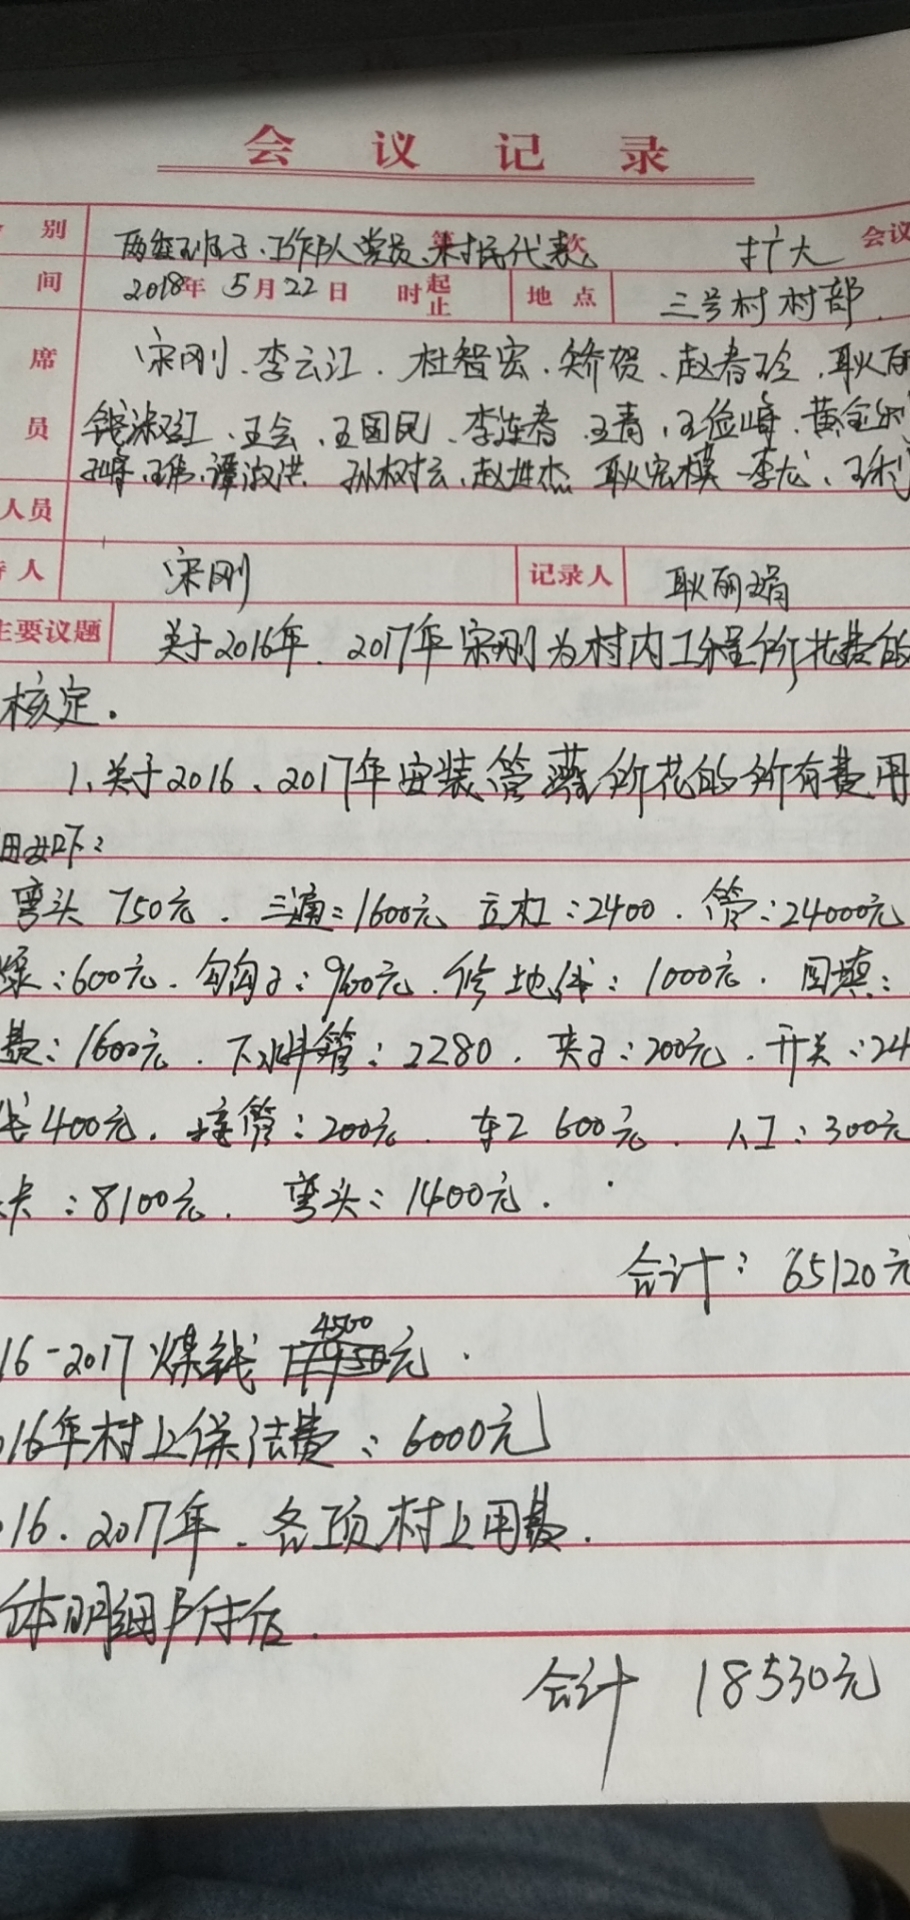 会议记录
别 两委班子、工作队党员、村民代表 第 次 扩大 会议
间 2018年5月22日 时 起止 地点 三号村村部
席 宋刚、李云江、杜智宏、矫贺、赵春玲、耿丽
员 钱淑红、王会、王国民、李连春、王青、王俭峰、黄金
峰、王伟、谭淑洪、孙树云、赵世杰、耿宏模、李龙、王
人员
人 宋刚 记录人 耿丽娟
主要议题 关于2016年、2017年宋刚为村内工程所花费的
核定。
1、关于2016、2017年安装管 所花的所有费用
用如下：
弯头 750元．三通：1600元 立杠：2400．管：24000元
：600元．勾勾子：960元．修地线：1000元．回填：
费：1600元．下水井管：2280．夹子：200元．开关：24
400元．接管：200元．车工 600元．人工：300元
卡：8100元．弯头：1400元．
合计：65120元
16-2017煤钱 4500元．
16年村上保洁费：6000元
16．2017年．各项村上用费．
体明细附后．
合计 18530元